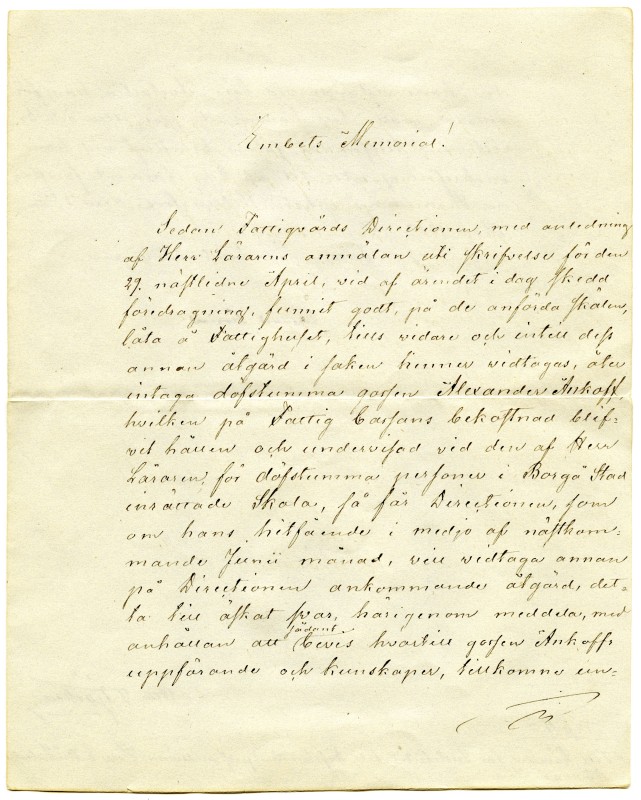 Embets Memorial!
Sedan Fattigvårds Directionen, med anledning
af Herr Lärarens anmälan uti skrifvelse för den
29. nästlidne April, vid af ärendet i dag skedd
föredragning, funnit godt, på de anförda skälen,
låta å Fattighuset, tills vidare och intill dess
annan åtgärd i saken hinner vidtagas, åter
intaga döfstumma gossen Alexander Ankoff,
hvilken på Fattig Cassans bekostnad blif-
vit hållen och undervisad vid den af Herr
Läraren, för döfstumma personer i Borgå Stad
inrättade Skola, så får Directionen, som
om hans hitsände i medjo af nästkom-
mande Junii månad, vill vidtaga annan
på Directionen ankommande åtgärd, det-
ta till äskat svar, härigenom meddela, med
anhållan att sådant bevis hvartill gossen Ankoffs
uppförande och kunskaper, tillkomne un-